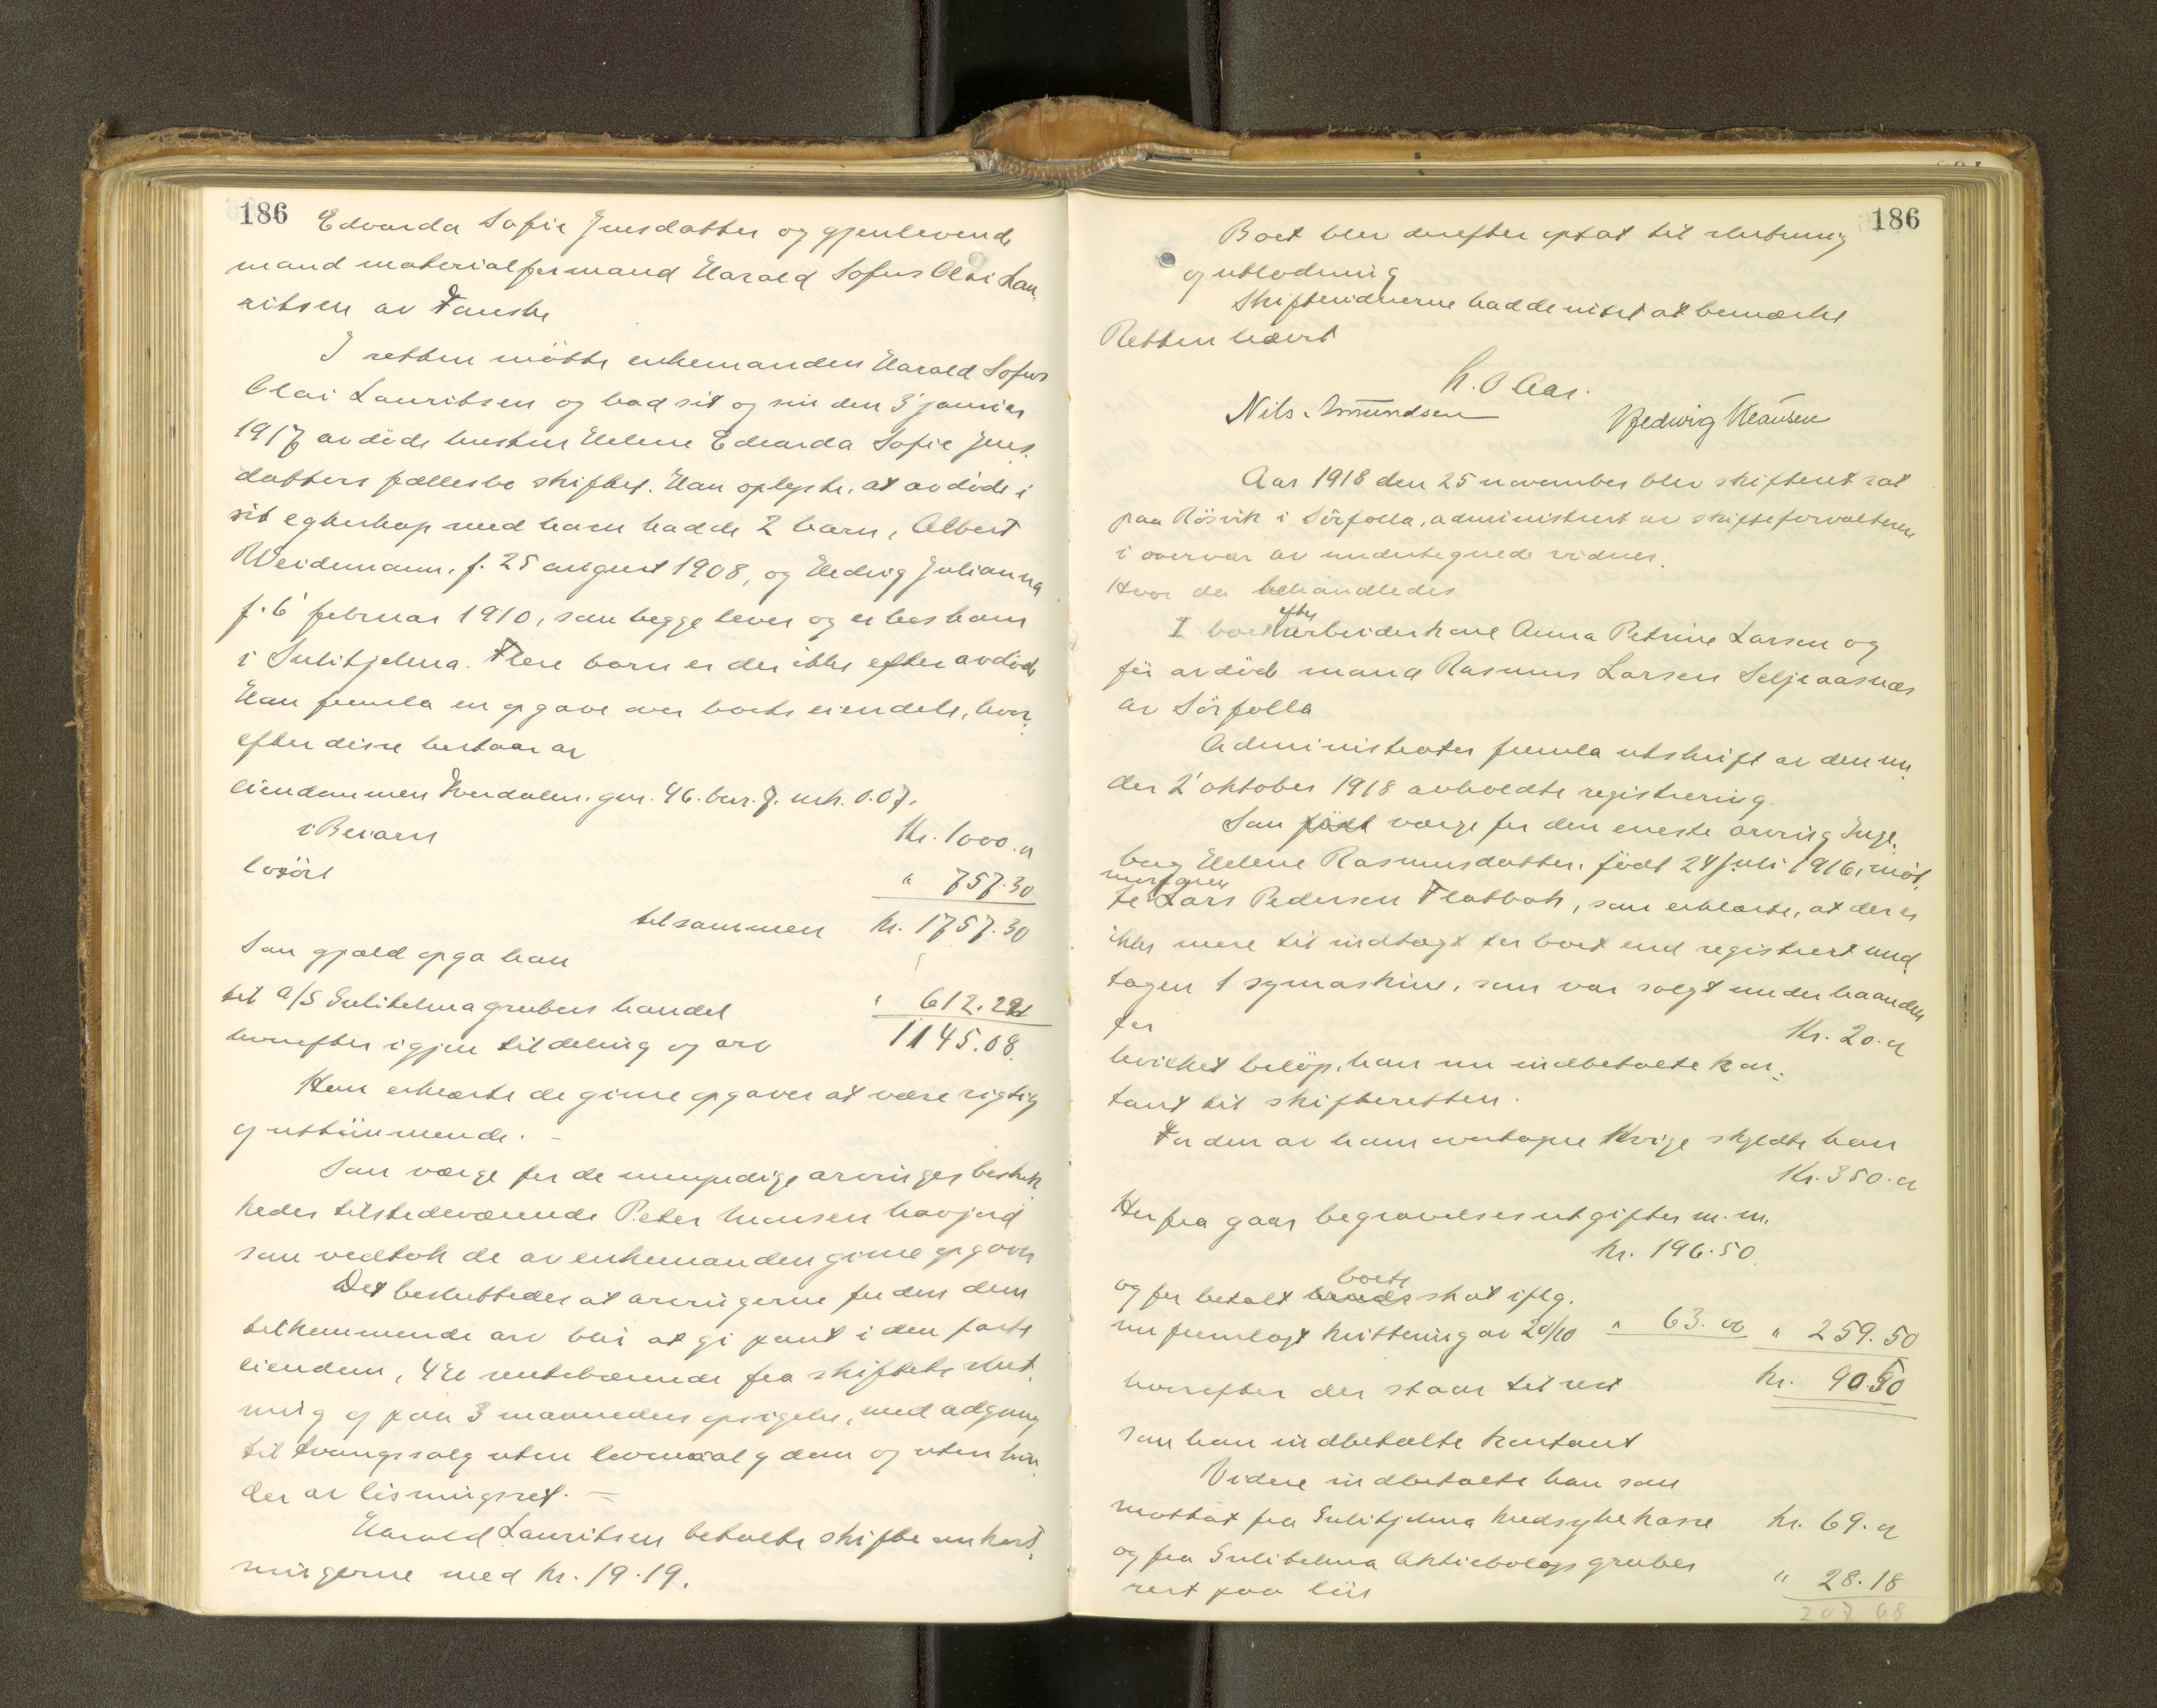 186
Edvarda Sofie Jensdatter og gjenlevende
mand materialformand Harald Sofus Olai Lau-
ritsen av Fauske
I retten møtte enkemanden Harald Sofus
Olai Lauritsen og bad sit og sin den 3' januar
1917 avdøde hustru Helene Edvarda Sofie Jens-
datters fællesbo skiftet. Han oplyste, at avdøde i
sit egteskap med ham hadde 2 barn, Albert
Weidemann, f. 25 august 1908, og Hedvig Julianna
f. 6' februar 1910, som begge lever og er hos ham
i Sulitjelma. Flere barn er der ikke efter avdøde
Han fremla en opgave over boets eiendele, hvor-
efter disse bestaar av
Eiendommen Kvedalen. gnr. 46. bnr. 7. mk. 0.07.
i Beiarn Kr. 1000.00
Losøre " 757.30
tilsammen kr. 1757.30
Som gjæld opga han
til A/S Sulitelma grubers handel " 612.22
hvorefter igjen til deling og arv 1145.08.
Han erklærte de givne opgaver at være rigtig
og uttømmende. -
Som værge for de umyndige arvinger beskik-
kedes tilstedeværende Peter Hansen
som vedtok de av enkemanden givne opgaver
Det besluttedes at arvingerne for den dem
tilkommende arv blir at gi pant i den faste
eiendom, 4% rentebærende fra skiftets slut-
ning og paa 3 maaneders opsigelse, med adgang
til tvangssalg uten lovmaal og dom og uten hin-
der av løsningsret. =
Harald Lauritsen betalte skifteomkost-
ningerne med kr. 19.19.
186
Boet blev derefter optat til slutning
og utlodning
Skiftevidnerne hadde intet at bemærke
Retten hævet
K. O. Aar.
Nils Amundsen Hedvig Klausen
Aar 1918 den 25 november blev skifteret sat
paa Røsvik i Sørfolla, administrert av skifteforvalteren
i overvær av undertegnede vidner.
Hvor da behandledes
I boet efter arbeiderkone Anna Petrine Larsen og
før avdøde mand Rasmus Larsen Seljeaasnæs
av Sørfolla
Administrator fremla utskrift av den un-
der 2' oktober 1918 avholdte registrering.
Som født værge for den eneste arving Inge-
borg Helene Rasmusdatter, født 24 juli 1916, møt-
te morfaren Lars Pedersen Flatbak, som erklærte, at der er
ikke mere til indtægt for boet end registrert und-
tagen 1 symaskine, som var solgt under haanden
for Kr. 20.00
hvilket beløp, han nu indbetalte kon-
tant til skifteretten.
For den av ham overtagne Kvige skyldte han
Kr. 350.00
Herfra gaar begravelsesutgifter m.m.
kr. 196.50
og for betalt boets skat iflg.
nu fremlagt kvittering av 20/10 " 63.00 " 259.50
hvorefter der staar til rest kr. 90.50
som han indbetalte kontant
Videre indbetalte han som
mottat fra Sulitjelma kredssykekasse kr. 69.00
og fra Sulitelma Aktiebolags gruber
rest paa løn " 28.18
207 68